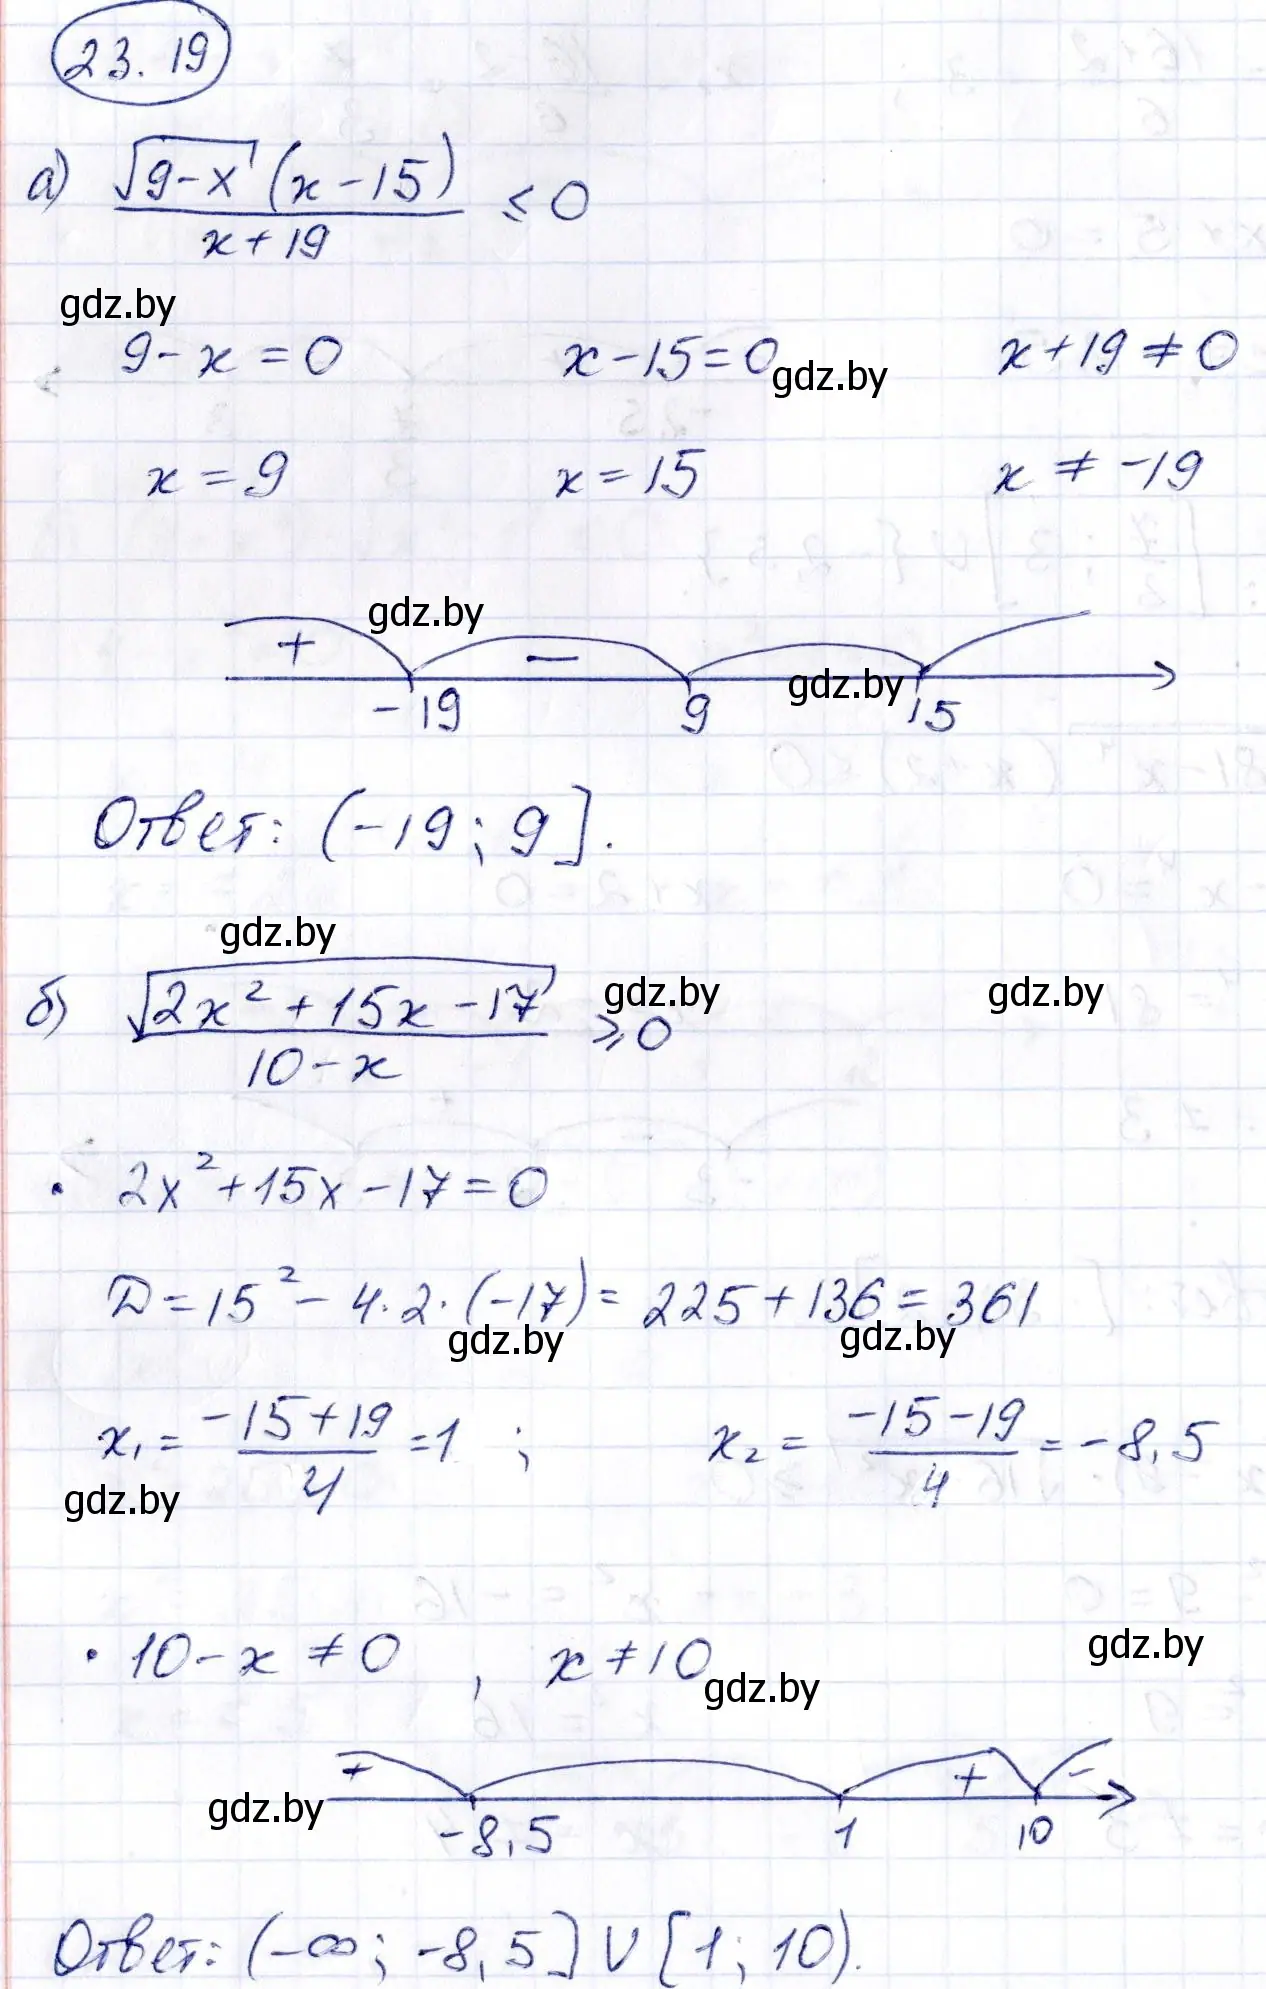 23.19
а) √(9-x) (x-15) / (x+19) ≤ 0
gdz.by
9-x=0 x-15=0 x+19≠0
gdz.by
x=9 x=15 x≠-19
gdz.by
+ −
gdz.by
-19 9 15
Ответ: (-19; 9].
gdz.by
б) √(2x²+15x-17) / (10-x) ≥ 0
gdz.by gdz.by
· 2x²+15x-17=0
D=15²-4·2·(-17)=225+136=361
gdz.by gdz.by
x₁=(-15+19)/4=1 ; x₂=(-15-19)/4=-8,5
gdz.by
· 10-x≠0 , x≠10
gdz.by
gdz.by
+ + -
gdz.by
-8,5 1 10
Ответ: (-∞; -8,5]∪[1; 10).